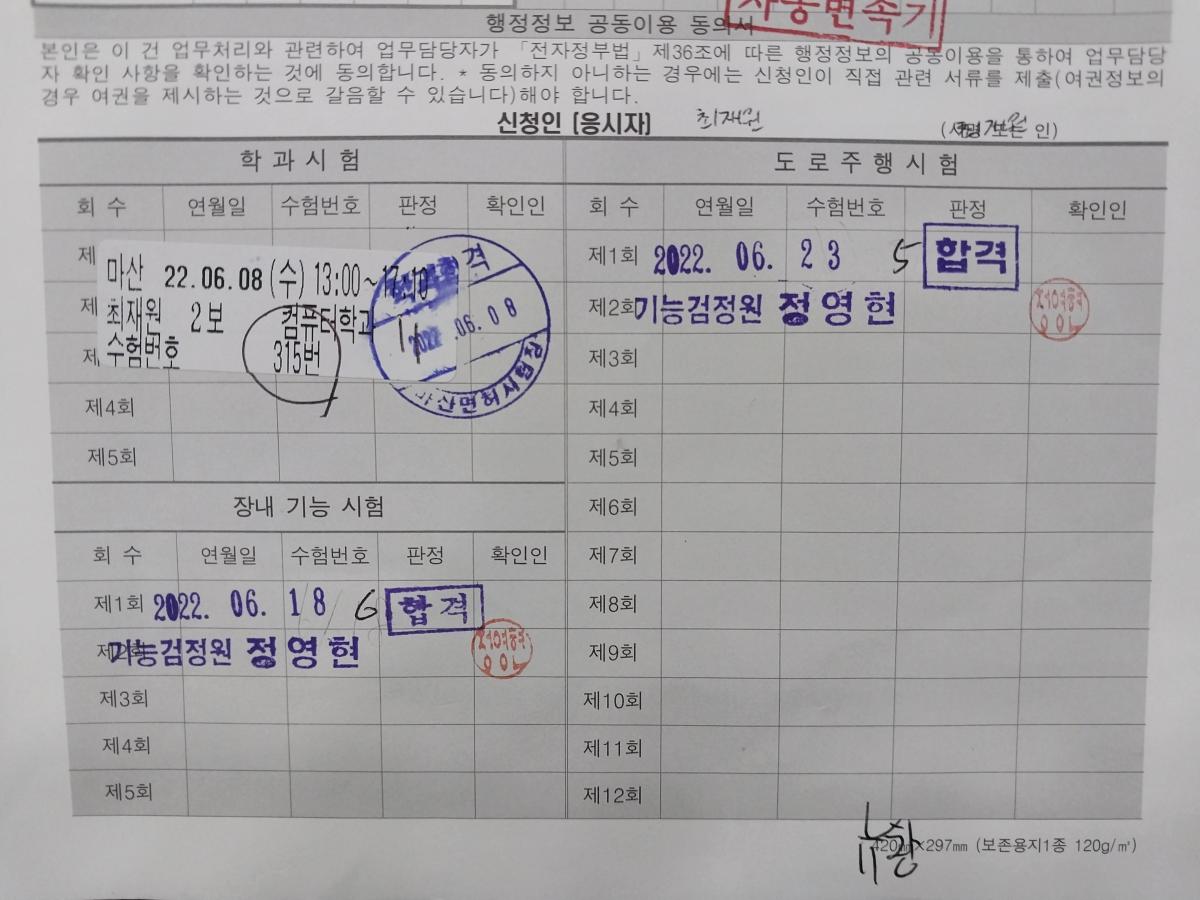 자동변속기
행정정보 공동이용 동의서
본인은 이 건 업무처리와 관련하여 업무담당자가 「전자정부법」 제36조에 따른 행정정보의 공동이용을 통하여 업무담당
자 확인 사항을 확인하는 것에 동의합니다. * 동의하지 아니하는 경우에는 신청인이 직접 관련 서류를 제출(여권정보의
경우 여권을 제시하는 것으로 갈음할 수 있습니다)해야 합니다.
신청인 [응시자] 최재원 (서명 또는 인)
학 과 시 험
회 수 연월일 수험번호 판정 확인인
제
마산 22.06.08 (수) 13:00~17:10
제
최재원 2보 컴퓨터학과
제
수험번호 315번
격
2022 .06.08
마산면허시험장
제4회
제5회
장내 기능 시험
회 수 연월일 수험번호 판정 확인인
제1회 2022. 06. 18 6 합격
제2회 기능검정원 정영현
정영현
인
제3회
제4회
제5회
도 로 주 행 시 험
회 수 연월일 수험번호 판정 확인인
제1회 2022. 06. 23 5 합격
제2회 기능검정원 정영현
정영현
인
제3회
제4회
제5회
제6회
제7회
제8회
제9회
제10회
제11회
제12회
420㎜×297㎜ (보존용지1종 120g/㎡)